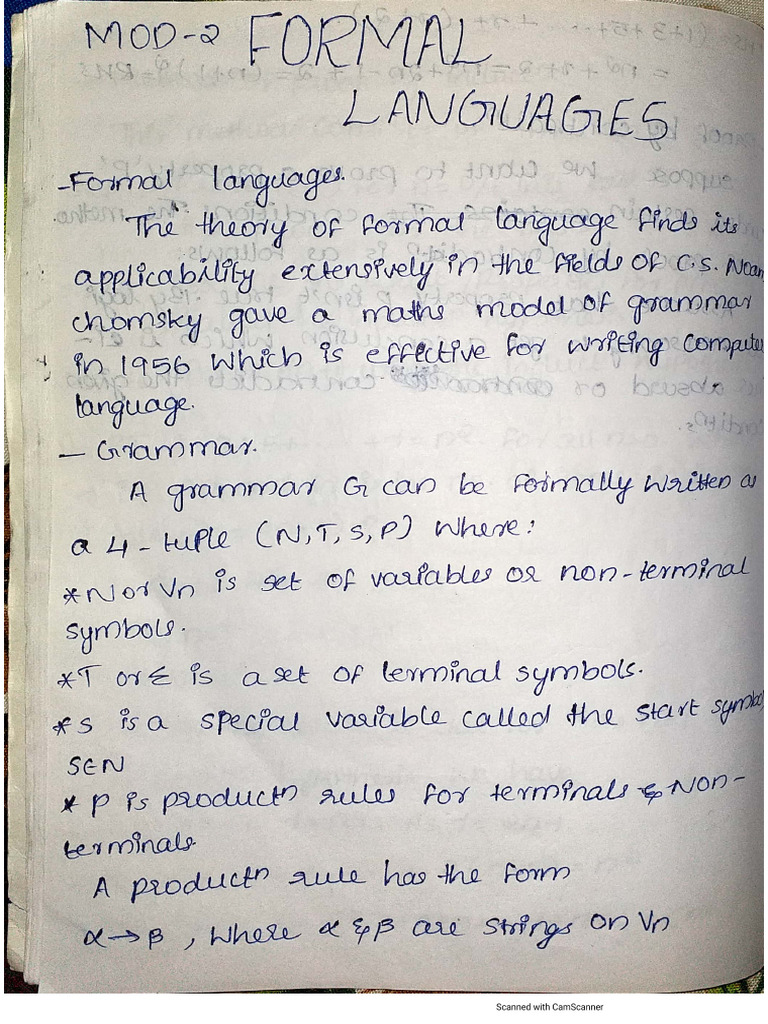 MOD-2 FORMAL
LANGUAGES
-Formal languages.
The theory of formal language finds its
applicability extensively in the fields of C.S. Noam
chomsky gave a maths model of grammar
in 1956 which is effective for writing compute
language.
- Grammar.
A grammar G can be formally written as
a 4-tuple (N,T,S,P) where:
*N or Vn is set of variables or non-terminal
symbols.
*T or Σ is a set of terminal symbols.
*S is a special variable called the start symbol
S∈N
*P is productn rules for terminals & Non-
terminals.
A productn rule has the form
α→β, where α & β are strings on Vn
Scanned with CamScanner